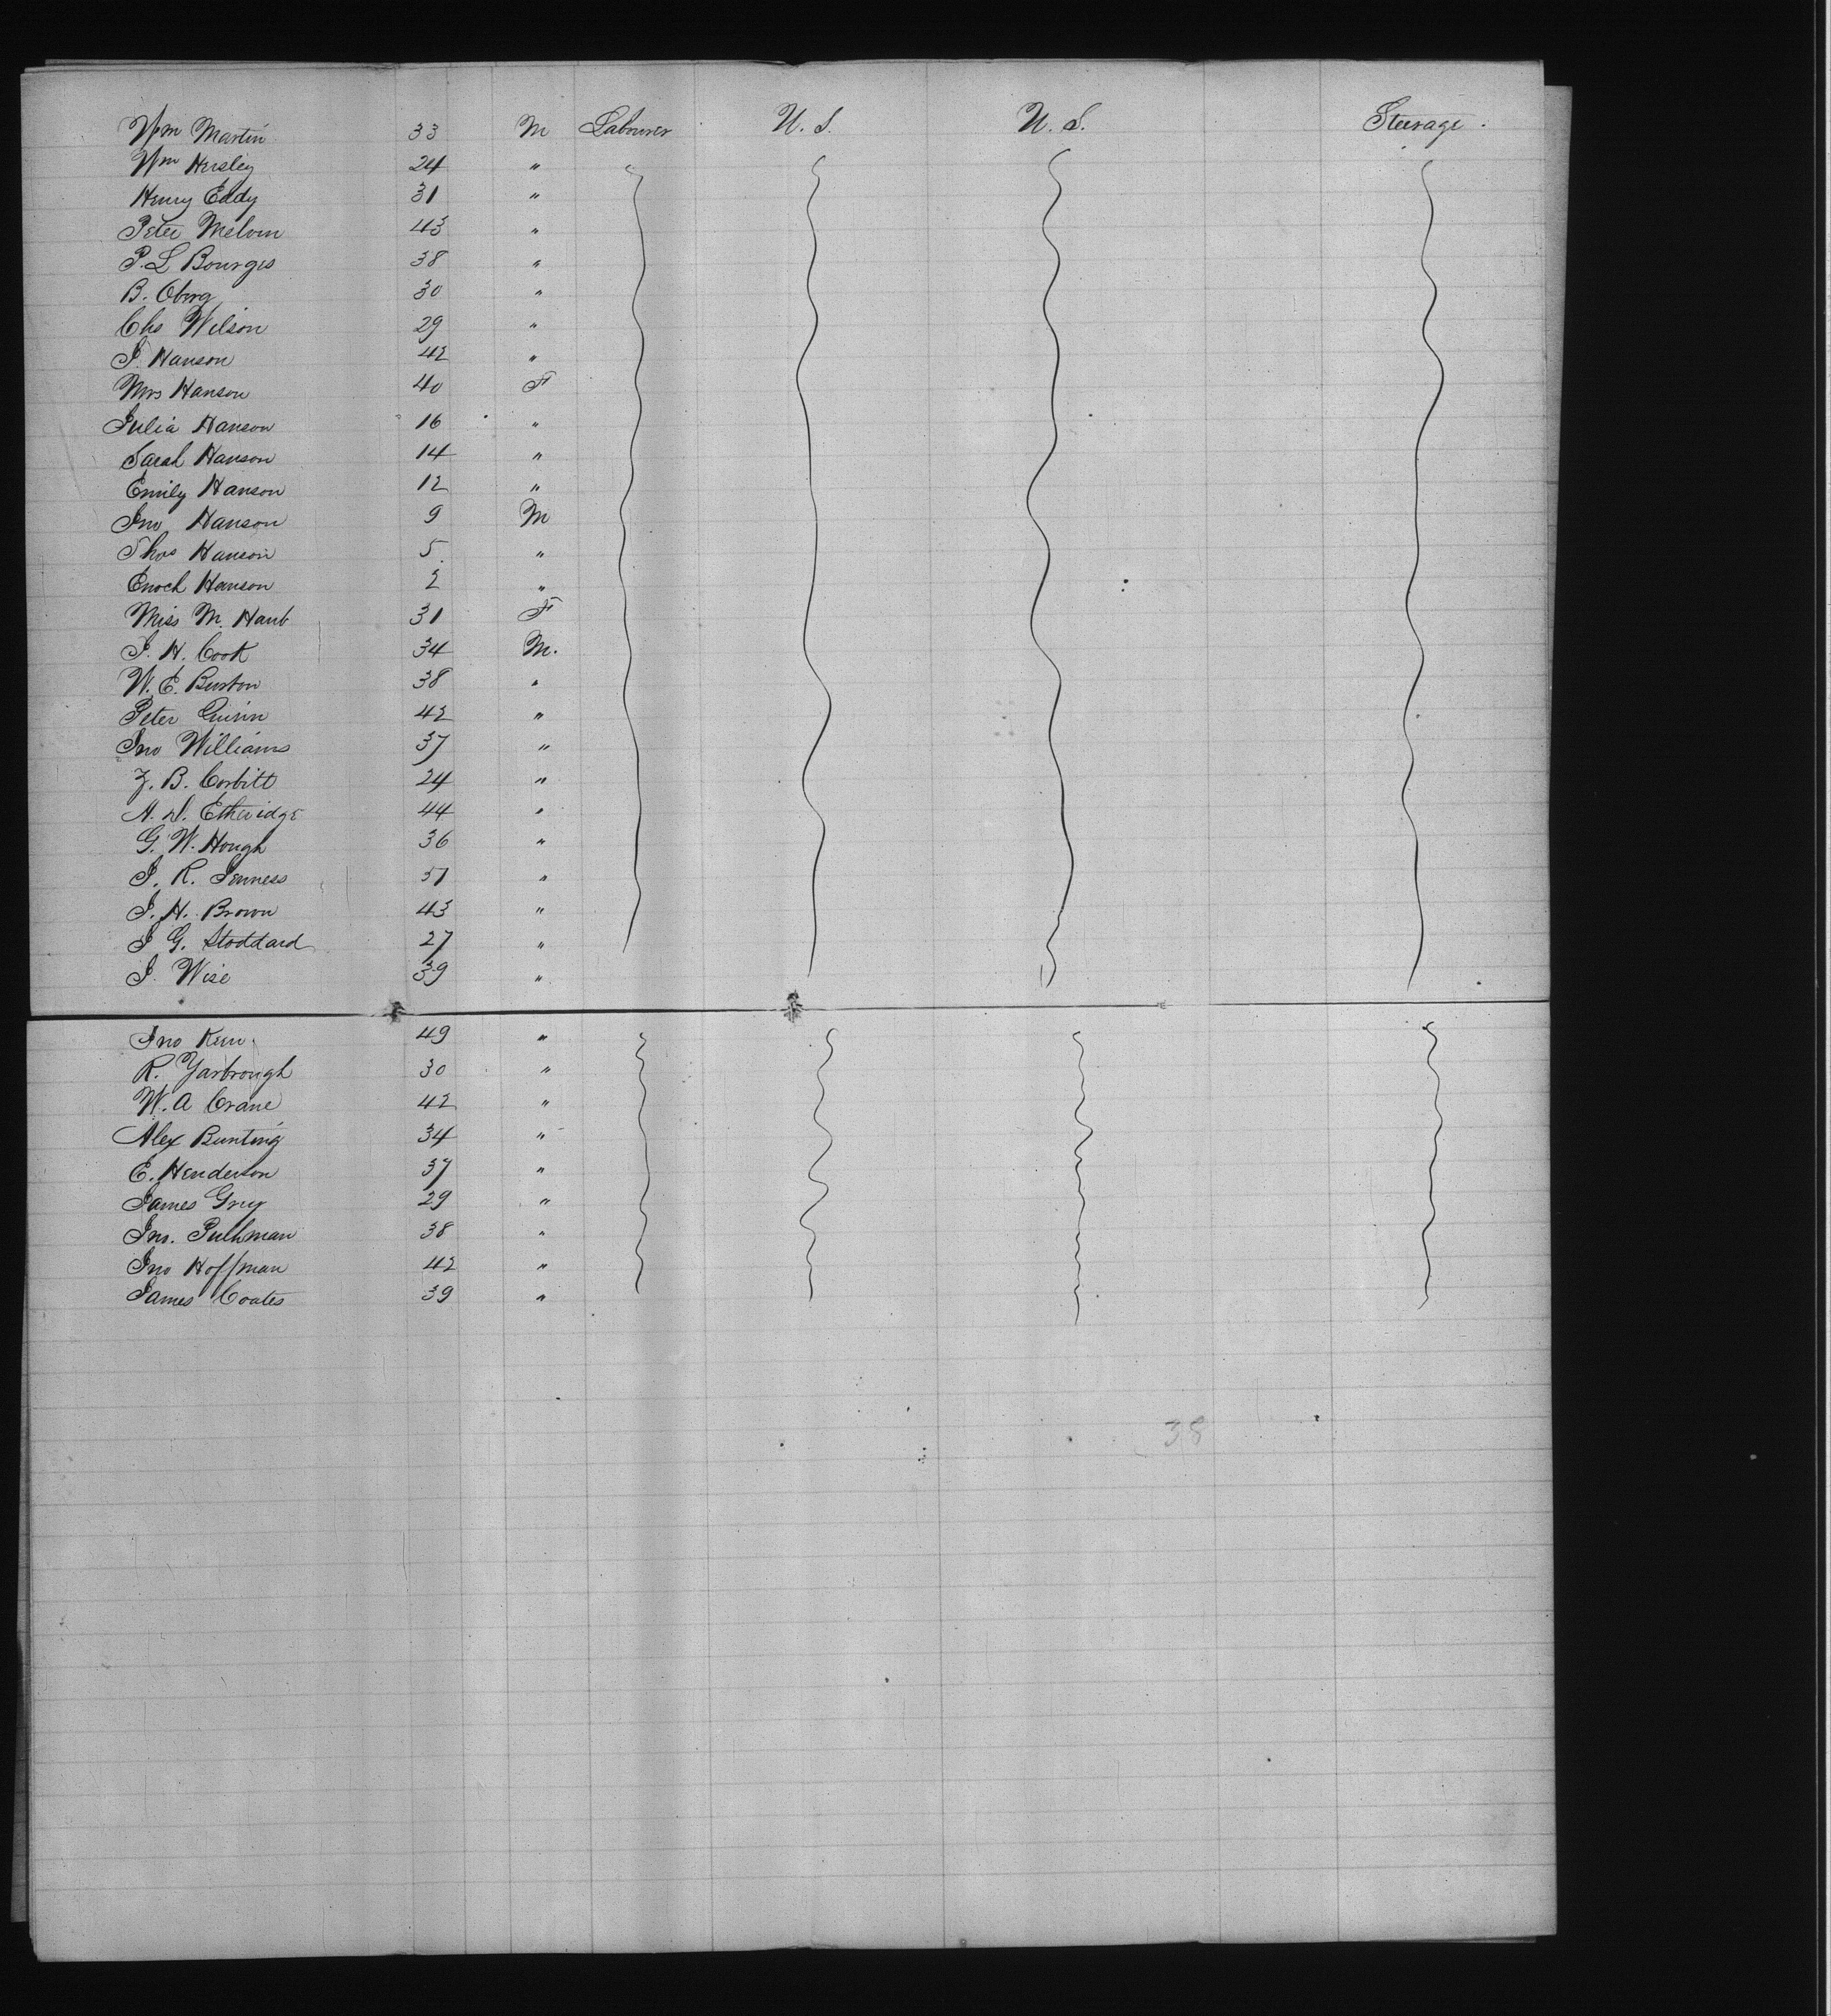 Wm Martin 33 M Labourer U. S. U. S. Steerage.
Wm Hersley 24 "
Henry Eddy 31 "
Peter Melvin 43 "
P. L Bourges 38 "
B. Oberg 30 "
Chs Wilson 29 "
J. Hanson 42 "
Mrs Hanson 40 F
Julia Hanson 16 "
Sarah Hanson 14 "
Emily Hanson 12 "
Jno Hanson 9 M
Thos Hanson 5 "
Enoch Hanson 2 "
Miss M. 31 F
J. H. Cook 34 M.
W. E. Burton 38 "
Peter Quinn 42 "
Jno Williams 37 "
Z. B. Corbitt 24 "
A. D. Etheridge 44 "
G. W. Hough 36 "
J. R. Jenness 51 "
J. H. Brown 43 "
J G. Stoddard 27 "
J. Wise 39 "
Jno 49 "
R. Yarbrough 30 "
W. A Crane 42 "
Alex Bunting 34 "
E. Henderson 37 "
James Grey 29 "
Jno. Pulhman 38 "
Jno Hoffman 42 "
James Coates 39 "
38